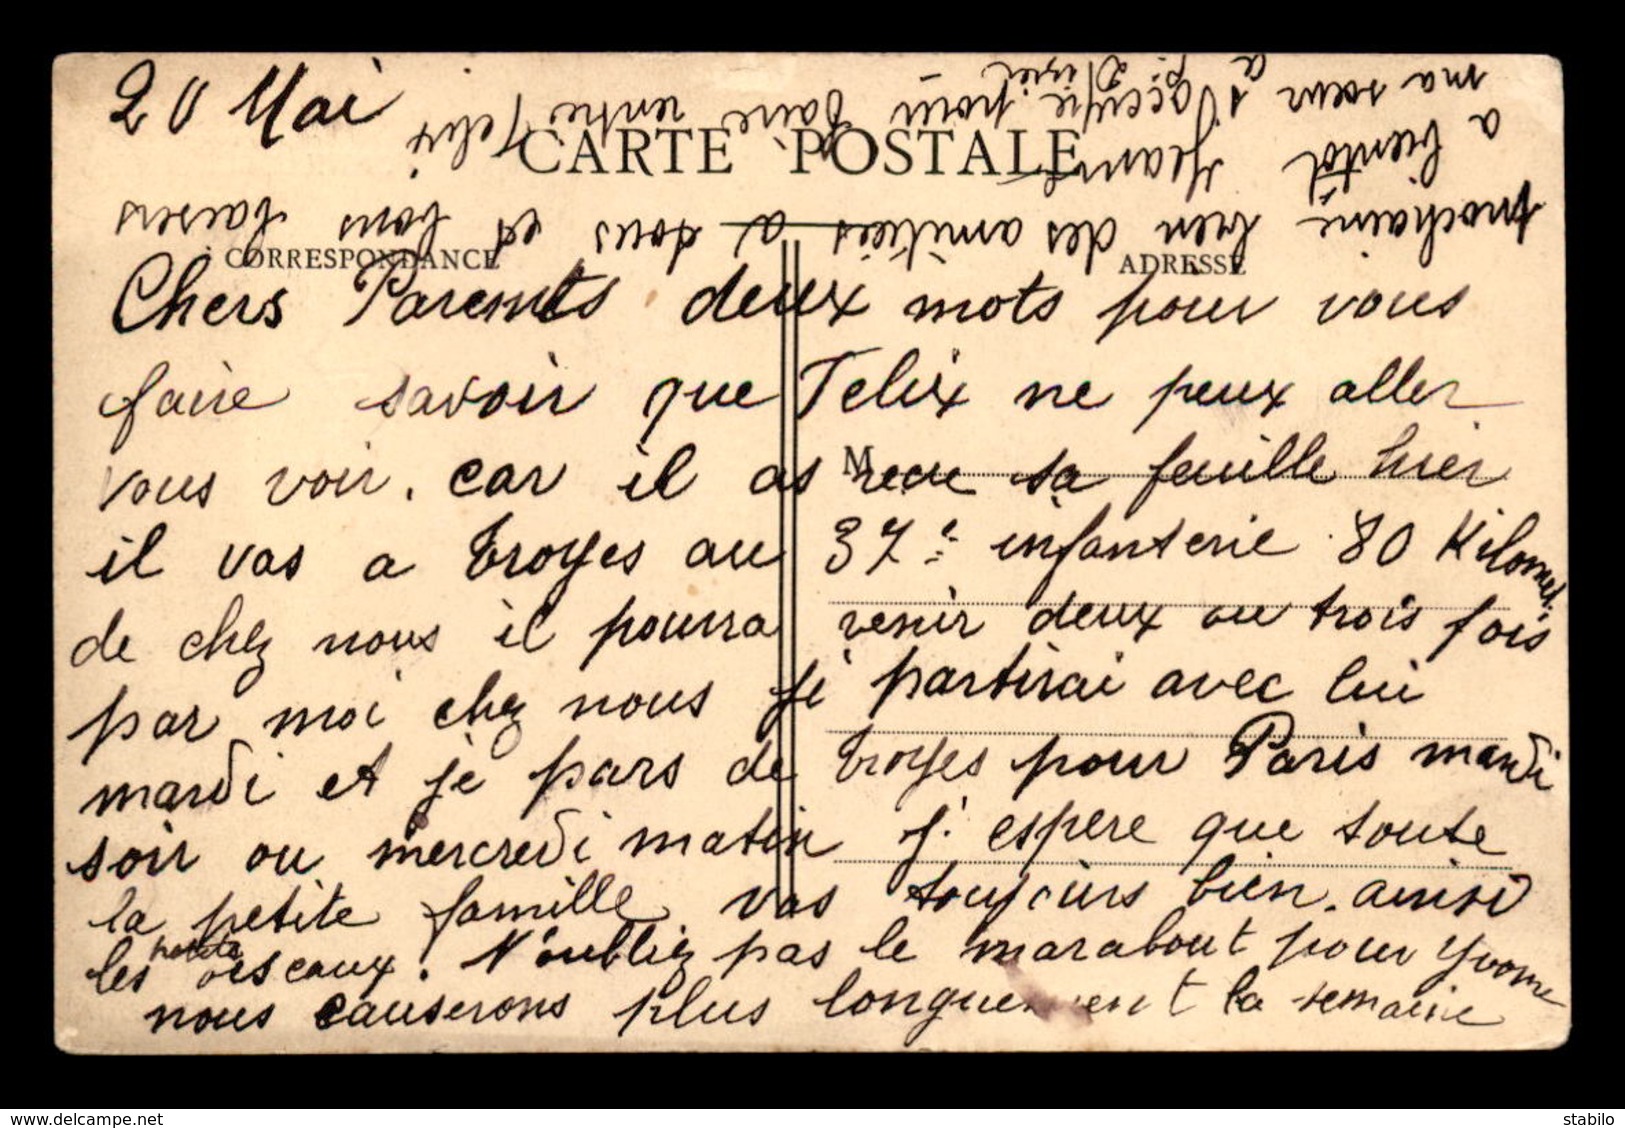 20 Mai
CARTE POSTALE
CORRESPONDANCE
ADRESSE
M
Chers Parents deux mots pour vous
faire savoir que Felix ne peux aller
vous voir. car il as recu sa feuille hier
il vas a Troyes au 37e infanterie 80 Kilomet.
de chez nous il pourra venir deux ou trois fois
par moi chez nous je partirai avec lui
mardi et je pars de Troyes pour Paris mardi
soir ou mercredi matin j'espere que toute
la petite famille vas toujours bien. ainsi
les petits oiseaux. N'oubliez pas le marabout pour Yvonne
nous causerons plus longuement la semaine
prochaine bien des amitiés a tous et bons baisers
a bientôt Jeanne Felix
ma sœur s'occupe pour faire rentre
a
delcampe.net
stabilo